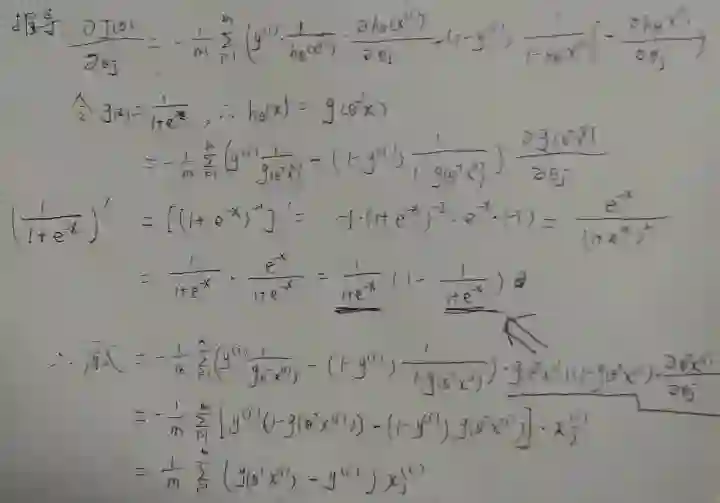 ∂J(θ)/∂θj = -1/m Σ (y⁽ⁱ⁾ · 1/hθ(x⁽ⁱ⁾) · ∂hθ(x⁽ⁱ⁾)/∂θj + (1-y⁽ⁱ⁾) 1/(1-hθ(x⁽ⁱ⁾)) (-∂hθ(x⁽ⁱ⁾)/∂θj))
令 g(x) = 1/(1+e⁻ˣ), ∴ hθ(x) = g(θᵀx)
= -1/m Σ (y⁽ⁱ⁾ 1/g(θᵀx⁽ⁱ⁾) - (1-y⁽ⁱ⁾) 1/(1-g(θᵀx⁽ⁱ⁾))) ∂g(θᵀx⁽ⁱ⁾)/∂θj
(1/(1+e⁻ˣ))' = [(1+e⁻ˣ)⁻¹]' = -1·(1+e⁻ˣ)⁻²·e⁻ˣ·(-1) = e⁻ˣ/(1+e⁻ˣ)²
= 1/(1+e⁻ˣ) · e⁻ˣ/(1+e⁻ˣ) = 1/(1+e⁻ˣ) (1 - 1/(1+e⁻ˣ))
∴ 原式 = -1/m Σ (y⁽ⁱ⁾ 1/g(θᵀx⁽ⁱ⁾) - (1-y⁽ⁱ⁾) 1/(1-g(θᵀx⁽ⁱ⁾))) · g(θᵀx⁽ⁱ⁾)(1-g(θᵀx⁽ⁱ⁾)) · ∂θᵀx⁽ⁱ⁾/∂θj
= -1/m Σ [y⁽ⁱ⁾(1-g(θᵀx⁽ⁱ⁾)) - (1-y⁽ⁱ⁾) g(θᵀx⁽ⁱ⁾)] · xj⁽ⁱ⁾
= 1/m Σ (g(θᵀx⁽ⁱ⁾) - y⁽ⁱ⁾) xj⁽ⁱ⁾